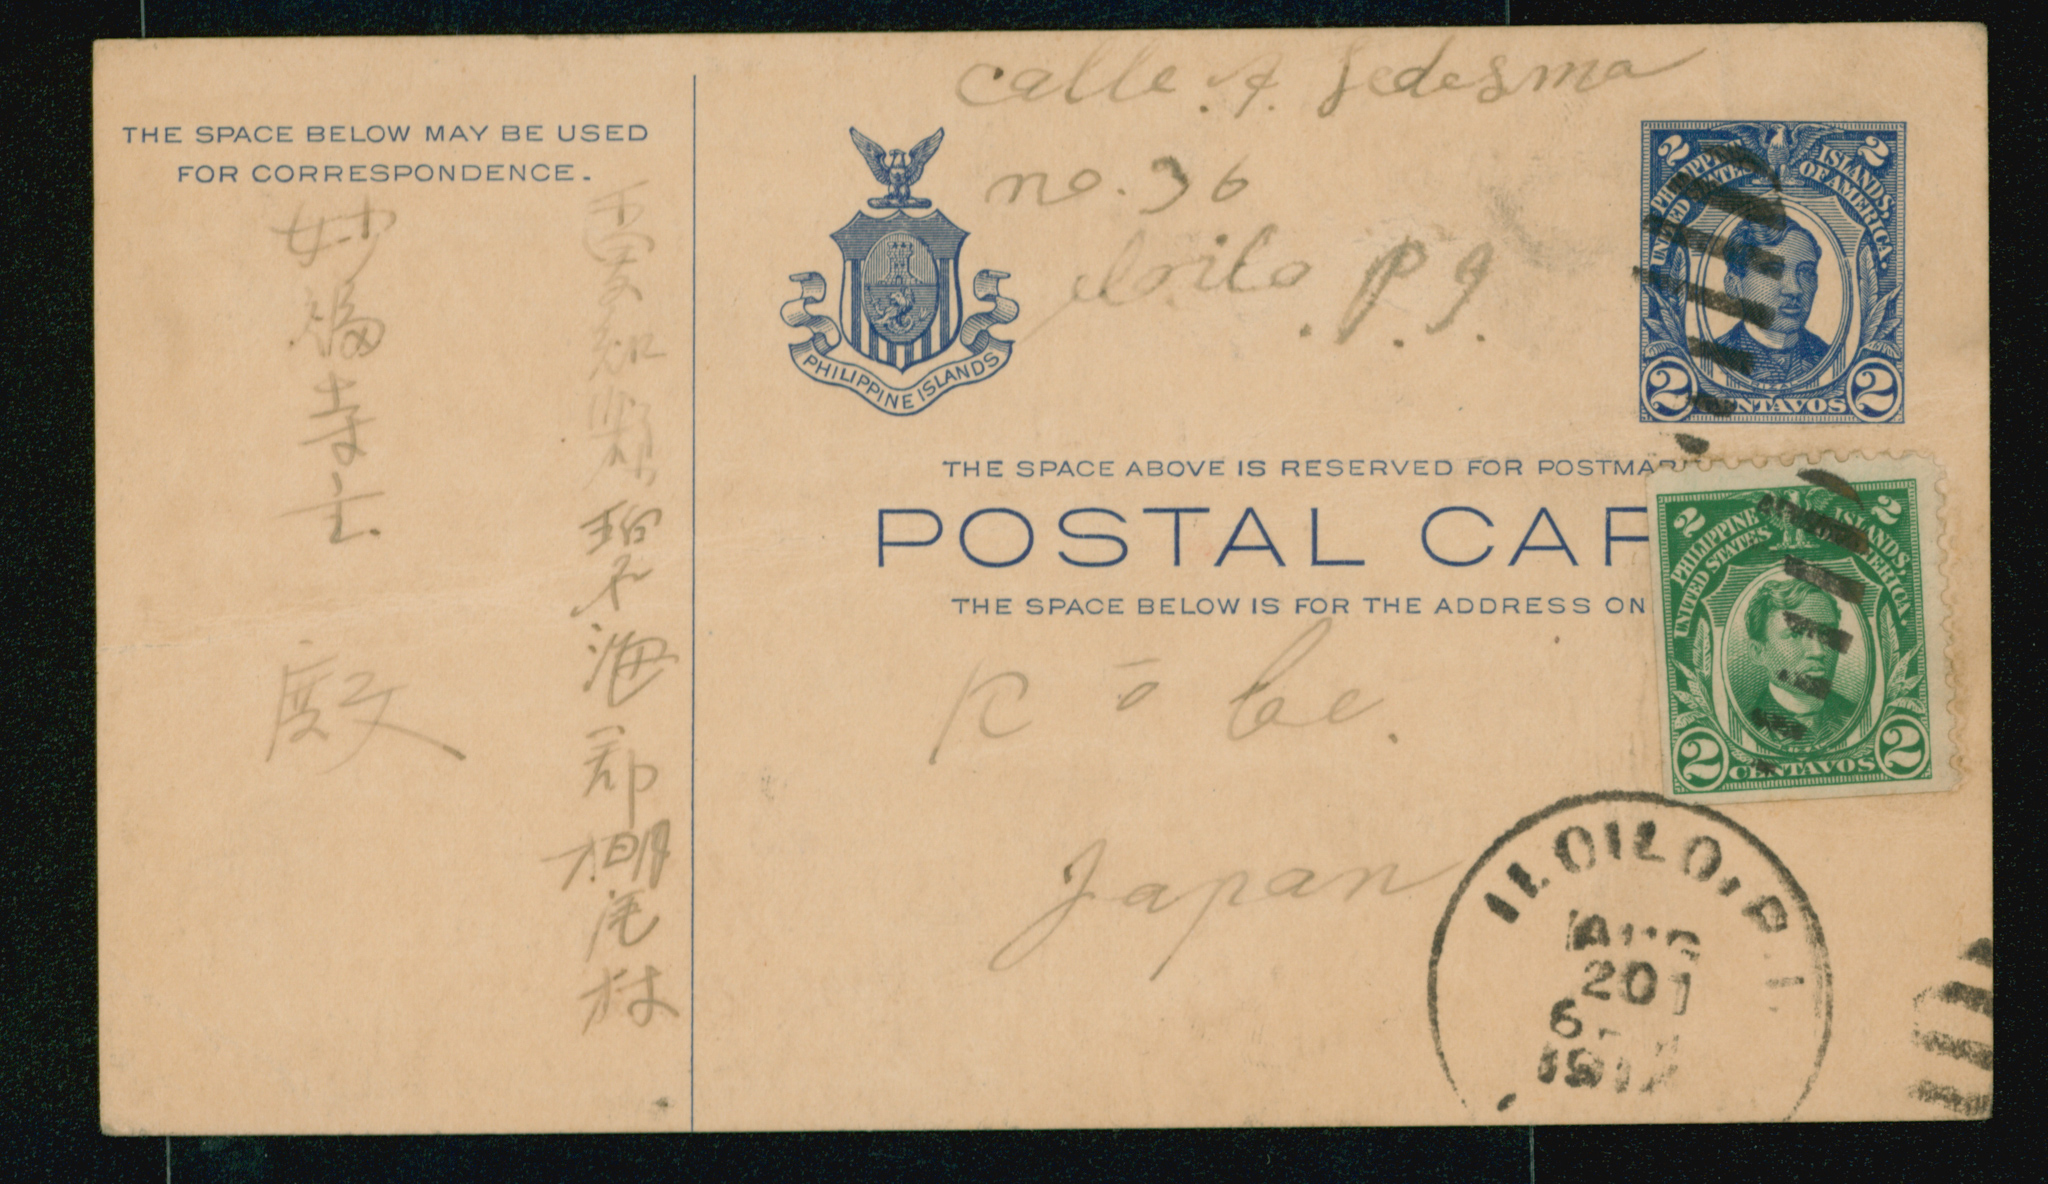 THE SPACE BELOW MAY BE USED
FOR CORRESPONDENCE.
愛知縣碧海郡棚尾村
妙福寺主
殿
calle. A. Ledesma
no. 36
Iloilo. P. I.
PHILIPPINE ISLANDS
2 2
PHILIPPINE ISLANDS,
UNITED STATES OF AMERICA.
RIZAL
2 CENTAVOS 2
THE SPACE ABOVE IS RESERVED FOR POSTMAR
POSTAL CAR
THE SPACE BELOW IS FOR THE ADDRESS ON
2 2
PHILIPPINE ISLANDS,
UNITED STATES AMERICA.
RIZAL
2 CENTAVOS 2
Kōbe.
Japan
ILOILO, P. I.
AUG
20
6-
191